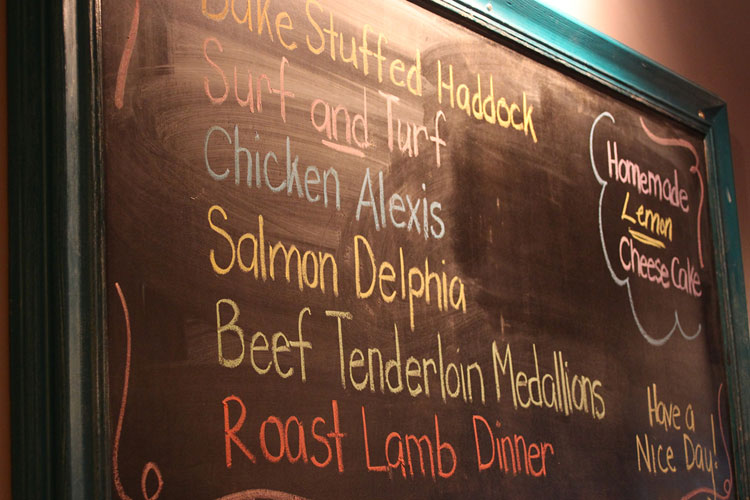 Bake Stuffed Haddock
Surf and Turf
Chicken Alexis
Salmon Delphia
Beef Tenderloin Medallions
Roast Lamb Dinner
Homemade
Lemon
Cheese Cake
Have a
Nice Day!